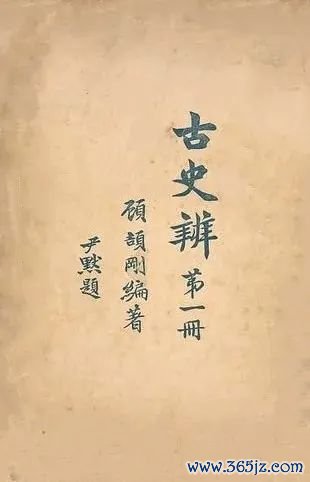 古史辨第一冊
顧頡剛編著
尹默題
www.365jz.com